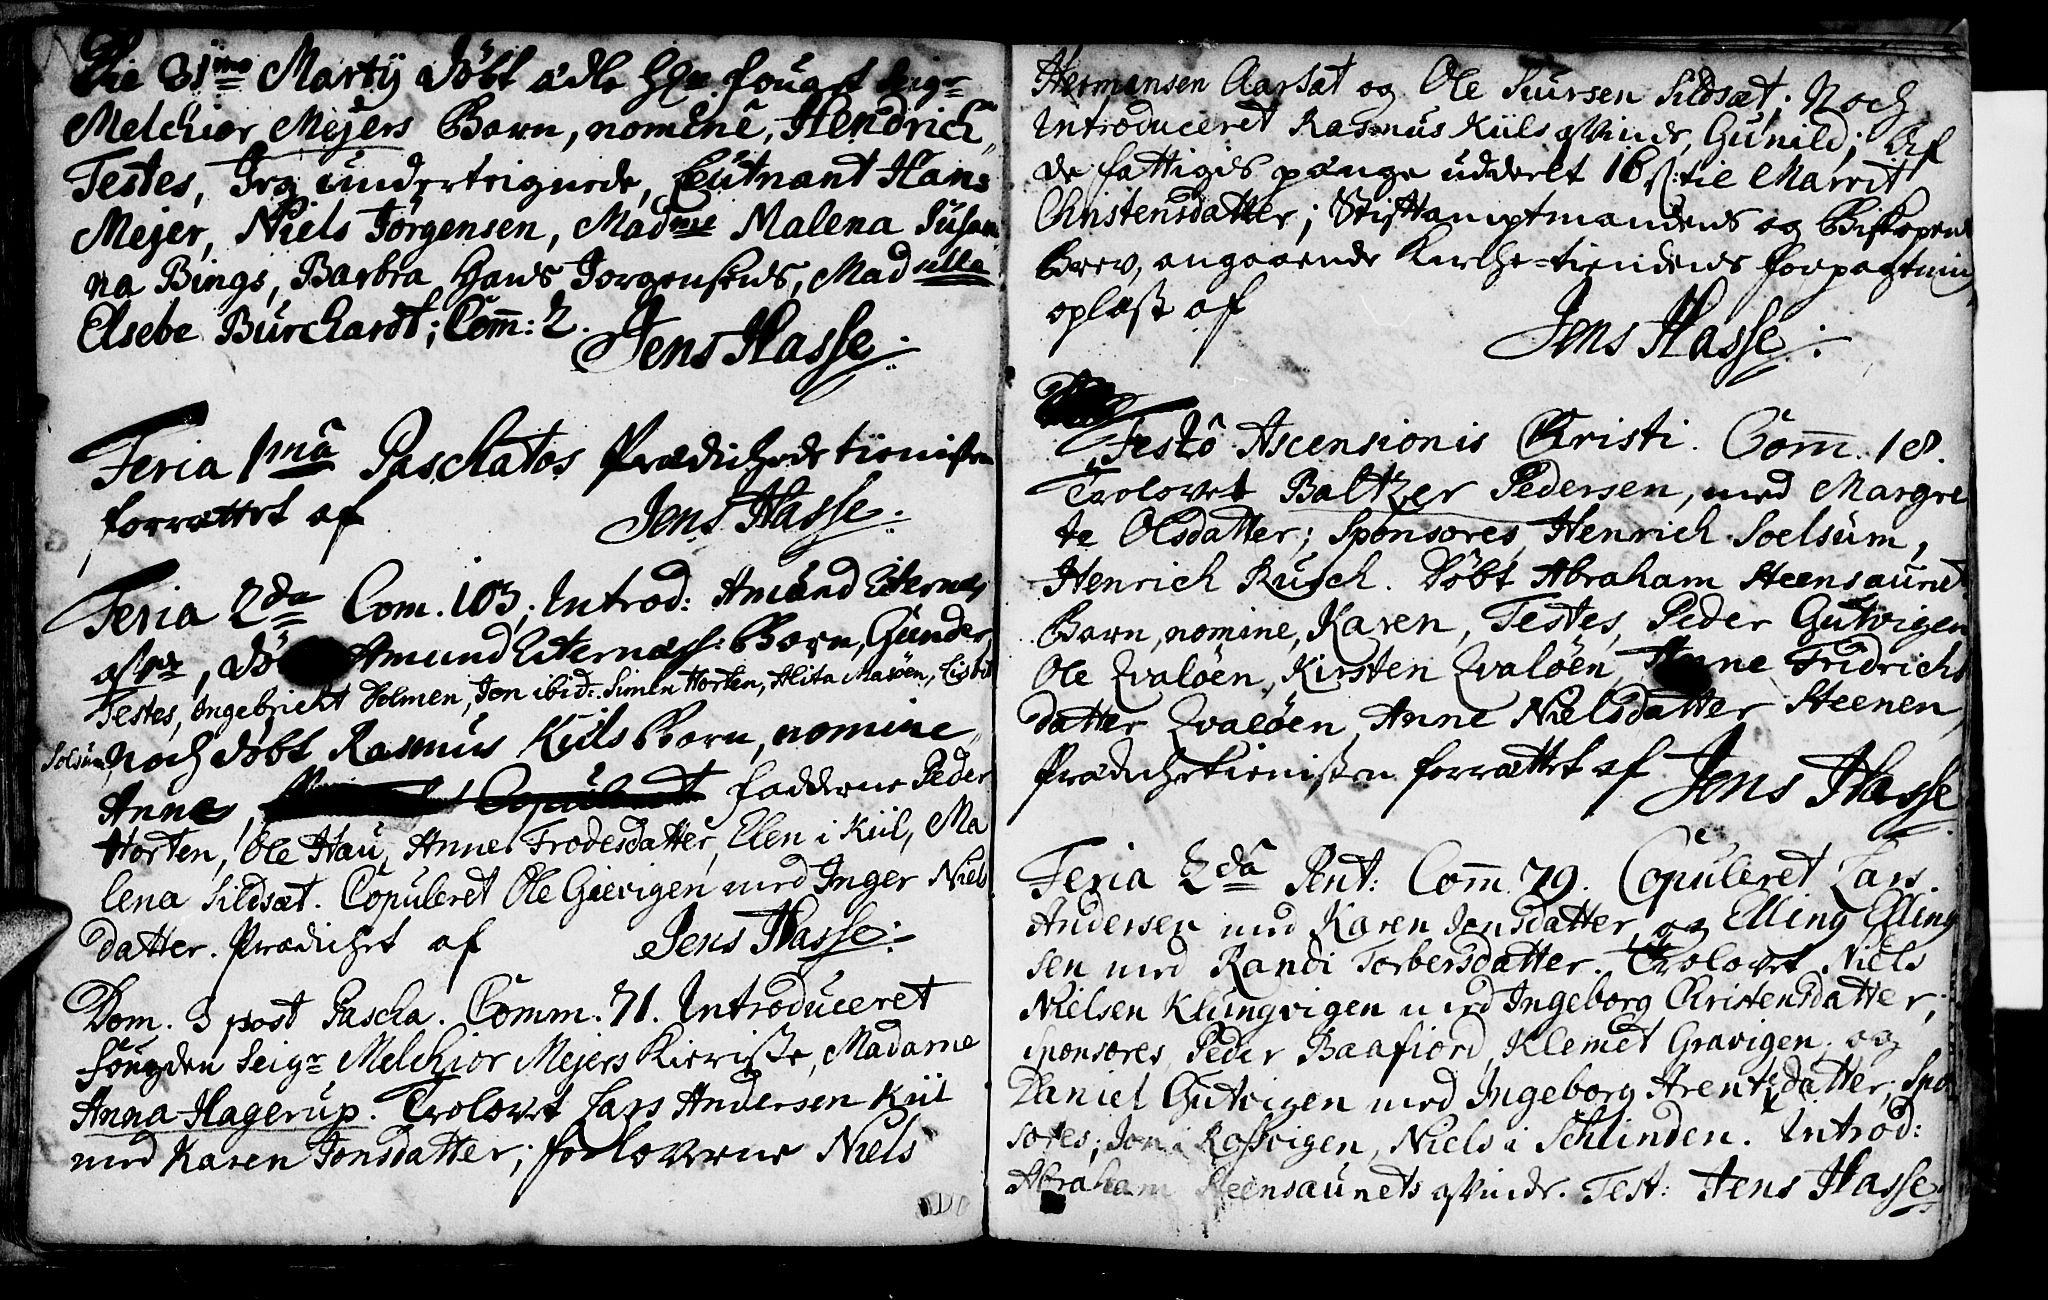 Die 31mo Martij Döbt ædle Hr. fougt Seigr
Melchior Mejers Barn, nomine, Hendrich,
Testes, Jeg underteignede, Leutnant Hans
Mejer, Niels Jörgensen, Madme Malena Susan
na Bings, Barbra Hans Jorgensens, Madselle
Elsebe Burchardt; Com: 2.
Jens Hasse.
Feria 1ma Paschatos Prædichetienisten
forrættet af
Jens Hasse.
Feria 2da Com. 103. Introd: Amund Eiternes
qvr, Dö Amund Eiternæss: Barn, Gunder,
Testes, Ingebricht Dolmen, Jon ibid: Simen Horten, Alita Masöen, Lisbet
Solsum, noch döbt Rasmus Kiils Barn, nomine,
Anne, Copuleret fadderne Peder
Horten, Ole Hau, Anne Frodesdatter, Elen i Kiil, Ma
lena Sildsæt. Copuleret Ole Gievigen med Inger Niels
datter. Prædichet af
Jens Hasse.
Dom. 3 post Pascha. Comm. 71. Introduceret
fougden Seigr Melchior Mejers Kieriste, Madame
Anna Hagerup. Trolovet Lars Andersen Kiil
med Karen Jonsdatter; forloverne Niels
Hermansen Aarsæt og Ole Siursen Sildsæt; Noch
Introduceret Rasmus Kiils qvinde, Gunild; Af
de fattiges penge uddeelt 16 ß: til Marrit
Christensdatter; Stiftamptmandens og Biskopens
Brev, angaaende Kirche-tiendens forpagtning
oplæst af
Jens Hasse.
Festo Ascensionis Christi. Com. 18.
Trolovet Baltzer Pedersen, med Margre
te Olsdatter; Sponsores, Henrich Soelsum,
Henrich Rusch. Döbt Abraham Steensaunets
Barn, nomine, Karen, Testes, Peder Gutvigen
Ole Qvalöen, Kirsten Qvalöen, Anne Fridrichs
datter Qvalöen, Anne Nielsdatter Steenen,
Prædichetienisten forrættet af Jens Hasse
Feria 2da Pent: Com. 79. Copuleret Lars
Andersen med Karen Jonsdatter, og Elling Elling
sen med Randi Torbersdatter. Trolovet Niels
Nielsen Klungvigen med Ingeborg Christensdatter;
sponsores, Peder Baafiord, Klemet Gravigen. og
Daniel Gutvigen med Ingeborg Arentzdatter; Spon
sores; Jon i Rosvigen, Niels i Schlinden. Introd:
Abraham Steensaunets qvinde. Test: Jens Hasse